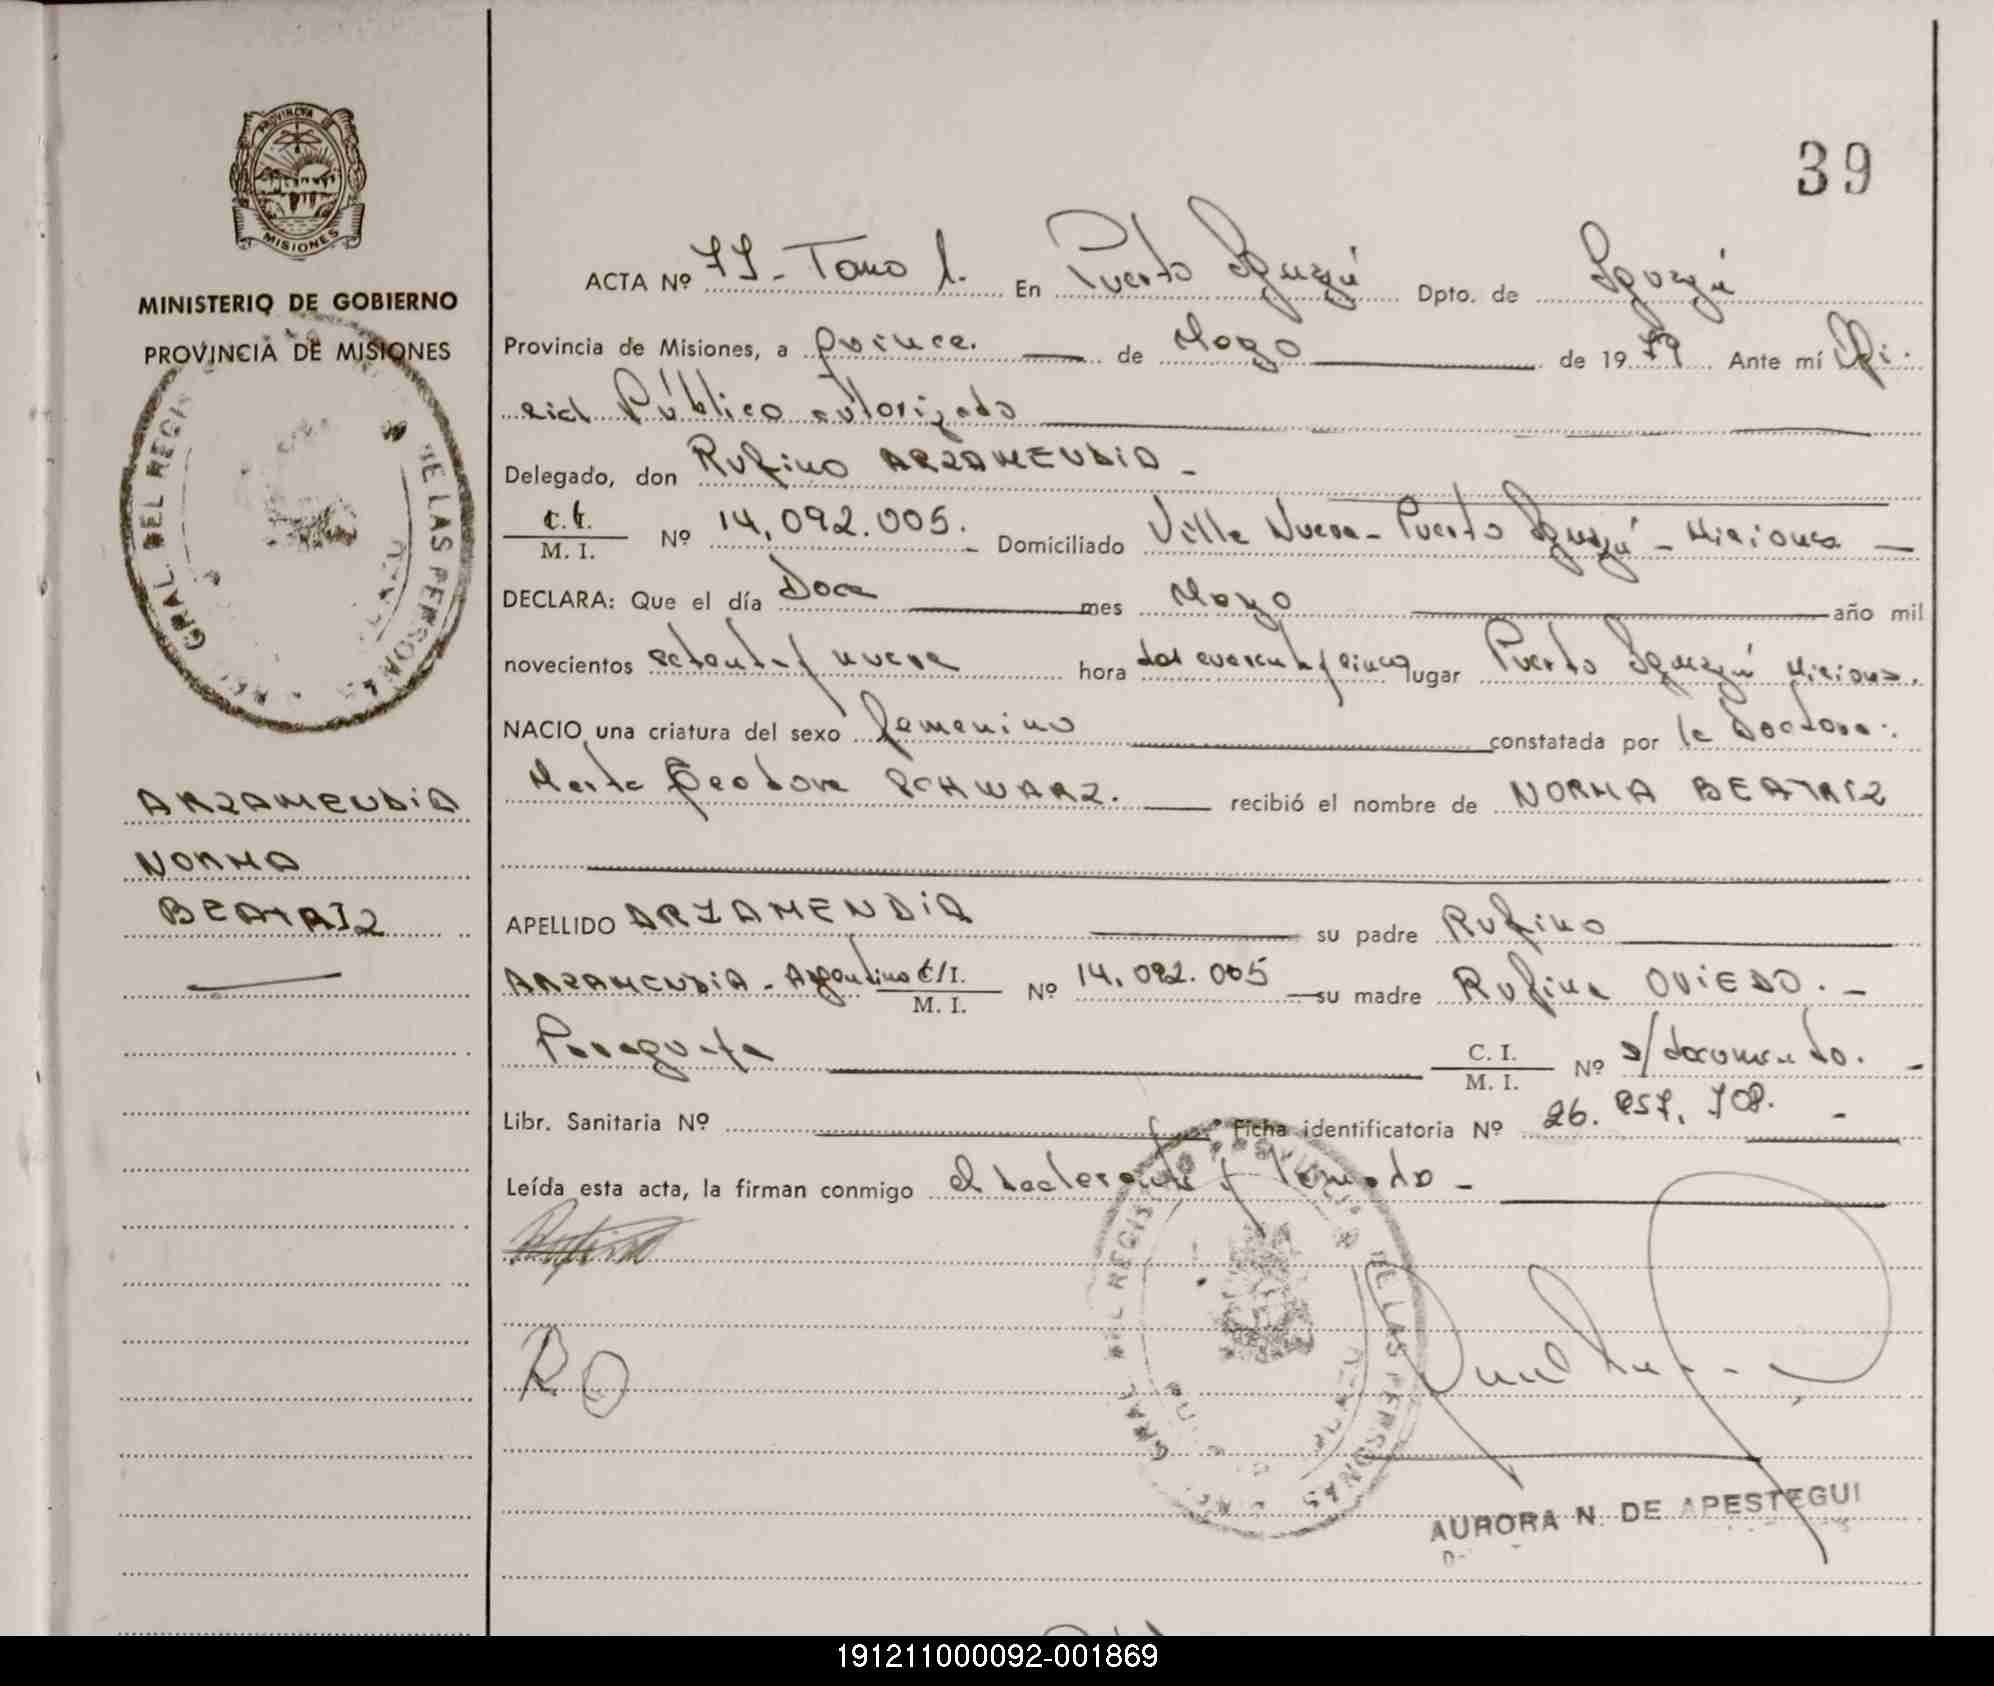 39
PROVINCIA DE
MISIONES
MINISTERIO DE GOBIERNO
PROVINCIA DE MISIONES
GRAL. DEL REGIS DE LAS PERSONAS
ARZAMENDIA
NORMA
BEATRIZ
ACTA Nº 77 - Tomo I. En Puerto Iguazú Dpto. de Iguazú
Provincia de Misiones, a quince. de Mayo de 1979 Ante mí Ofi-
cial Público autorizado
Delegado, don Rufino ARZAMENDIA -
C.I. / M. I. Nº 14.092.005. - Domiciliado Villa Nueva - Puerto Iguazú - Misiones -
DECLARA: Que el día Doce mes Mayo año mil
novecientos setenta y nueve hora dos cuarenta y cinco lugar Puerto Iguazú Misiones.
NACIO una criatura del sexo femenino constatada por la Doctora.
Marta Teodora SCHWARZ. recibió el nombre de NORMA BEATRIZ
APELLIDO ARZAMENDIA su padre Rufino
ARZAMENDIA - Argentino C/I. / M. I. Nº 14.092.005 - su madre Rufina OVIEDO. -
Paraguaya C. I. / M. I. Nº s/documento. -
Libr. Sanitaria Nº Ficha identificatoria Nº 26. 708. -
Leída esta acta, la firman conmigo el declarante y -
RO
GRAL. DEL REGIS DE LAS PERSONAS
AURORA N. DE APESTEGUI
191211000092-001869